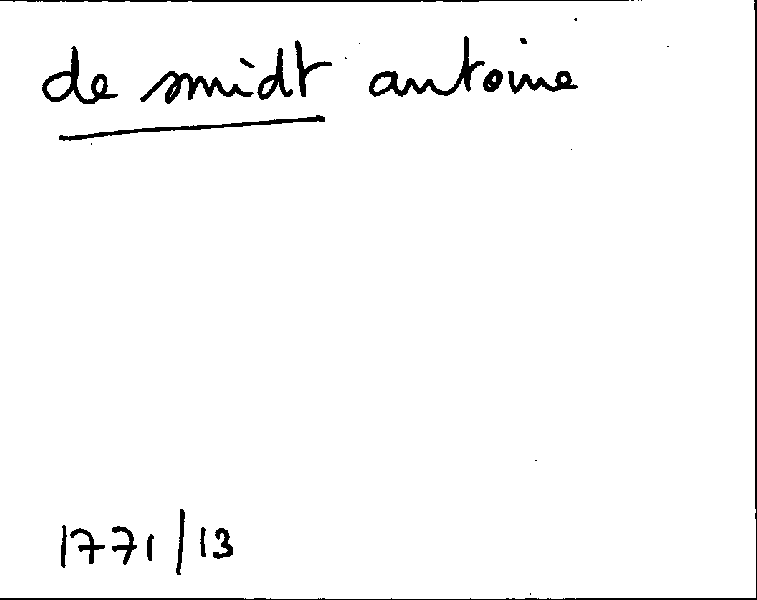 de smidt antoine
1771/13